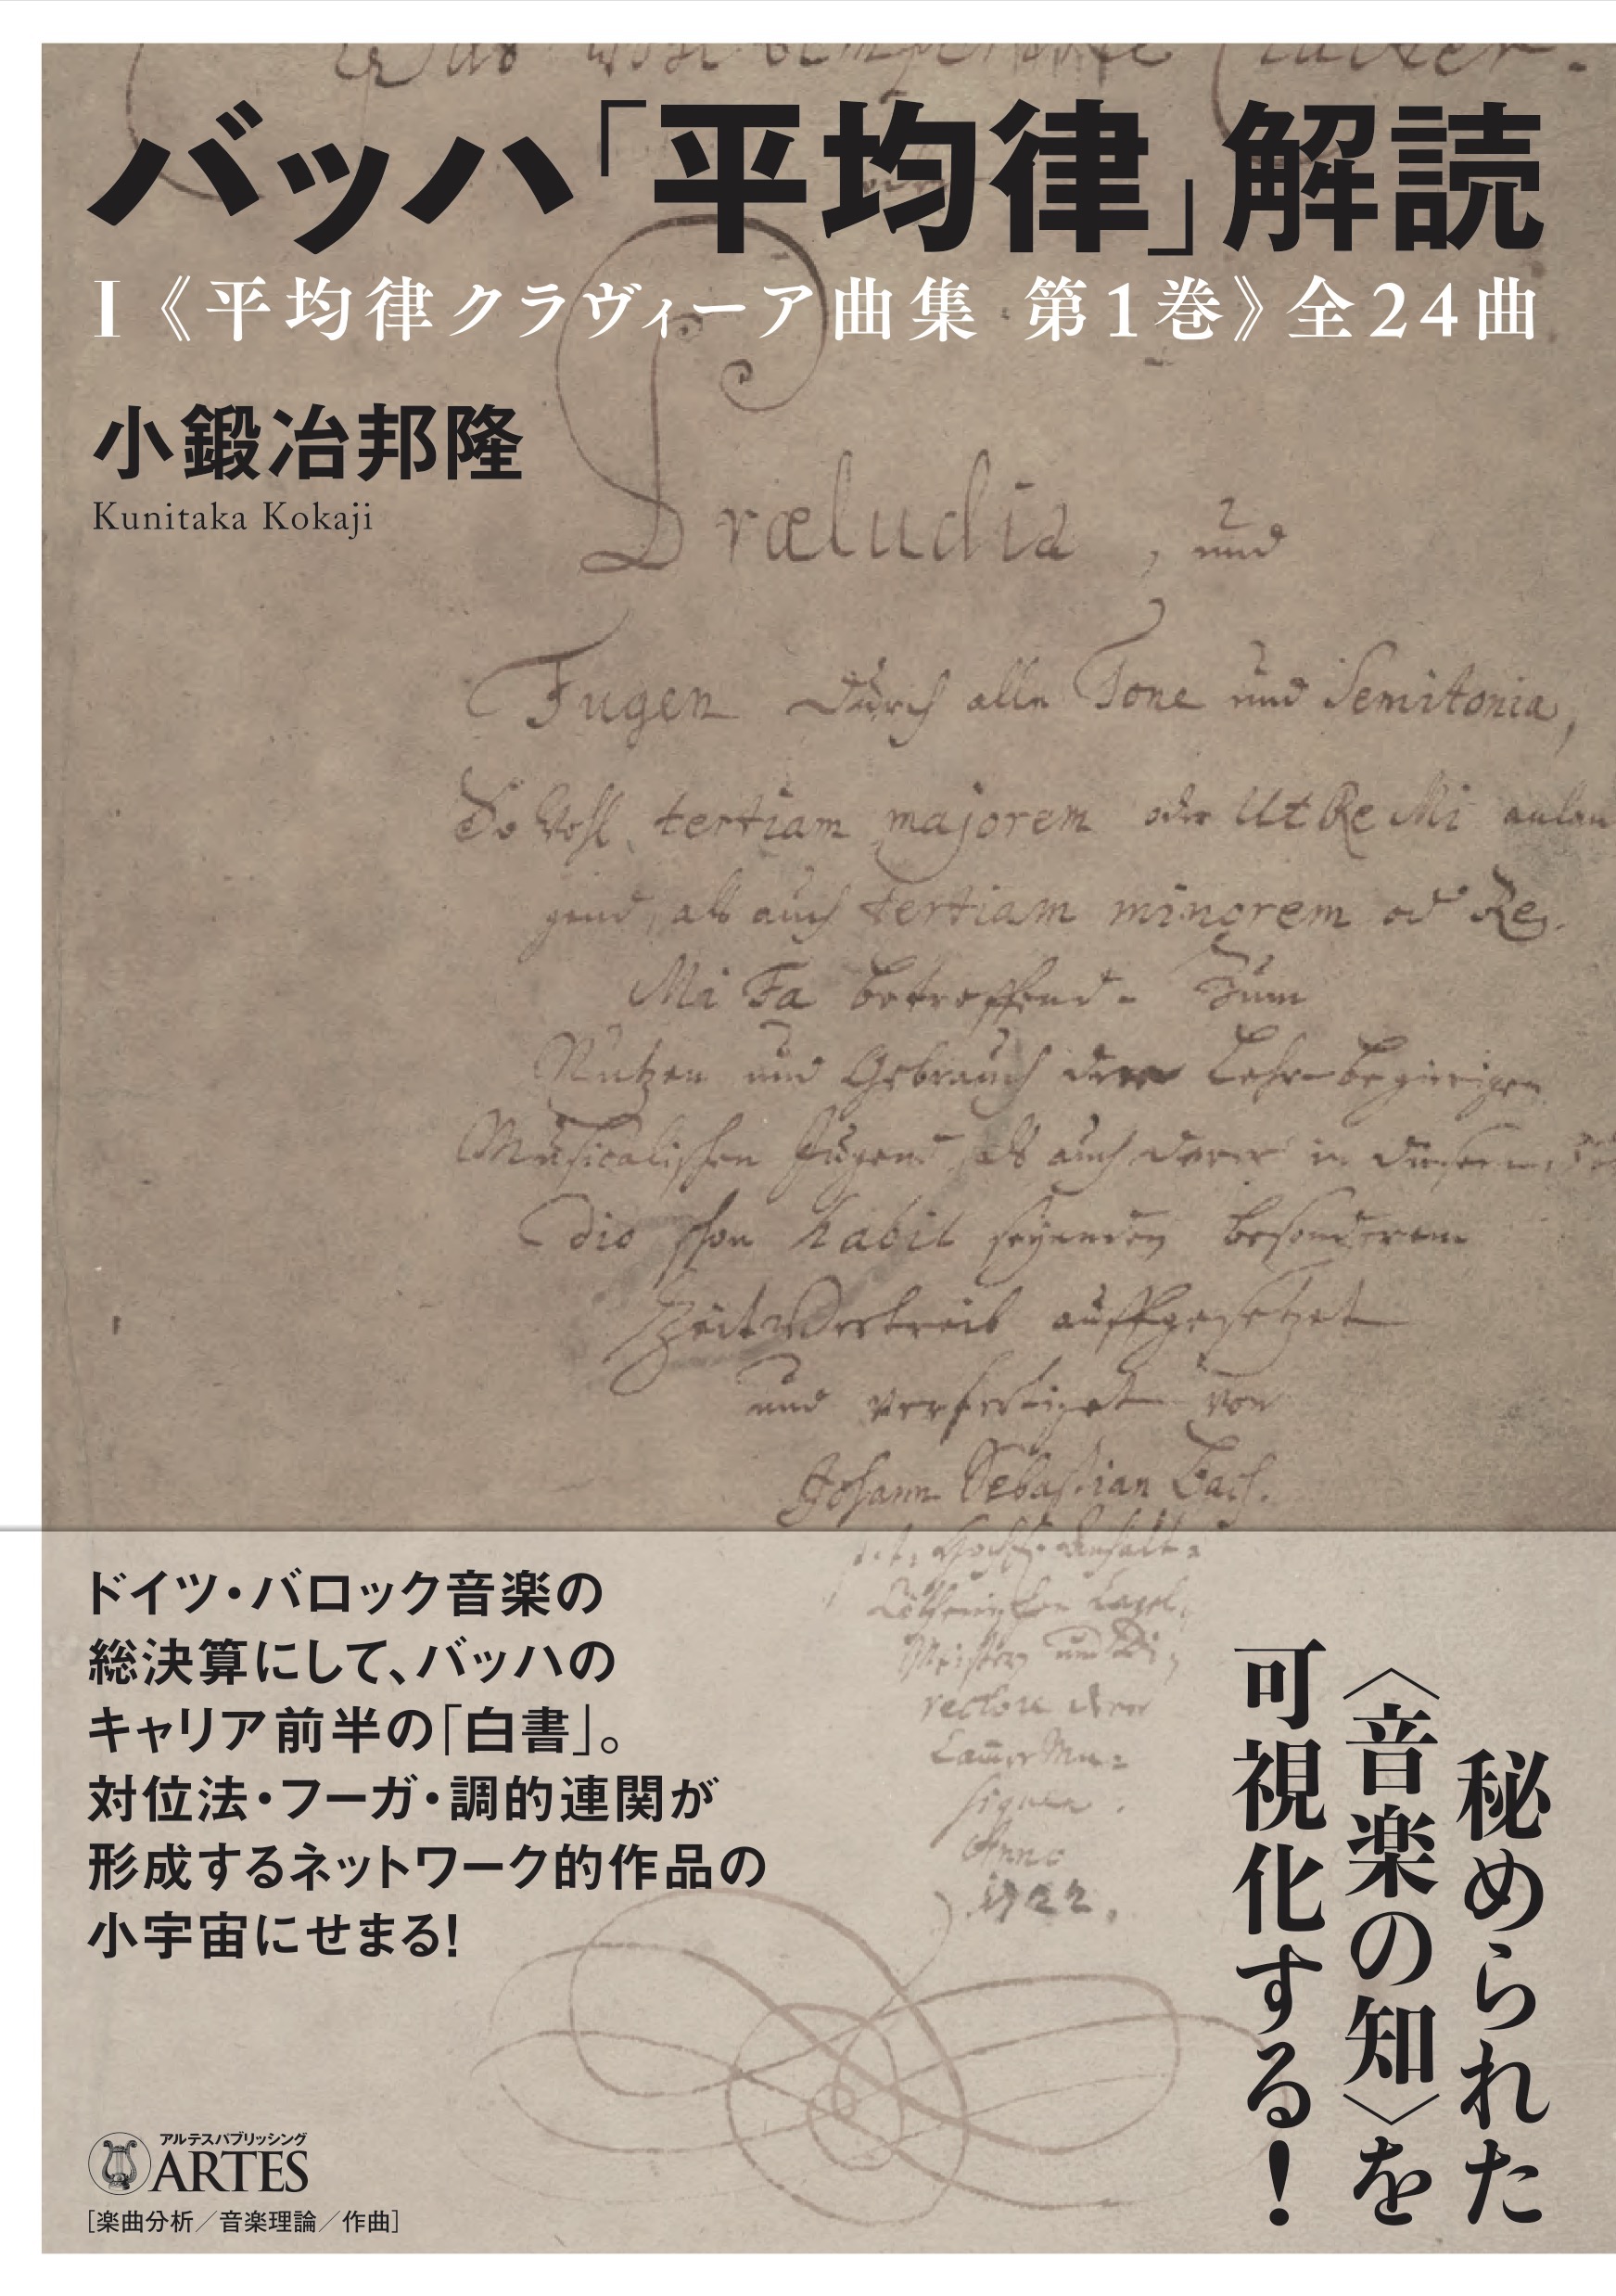 バッハ「平均律」解読
I《平均律クラヴィーア曲集 第1巻》全24曲
小鍛冶邦隆
Kunitaka Kokaji
Præludia, und
Fugen durch alle Tone und Semitonia,
So wohl tertiam majorem oder Ut Re Mi anlan
gend, als auch tertiam minorem od Re
Mi Fa betreffend. Zum
Nutzen und Gebrauch der Lehrbegierigen
Musicalischen Jugend, als auch derer in diesem
die schon habil seyenden besonderem
ZeitVertreib auffgesetzet
und verfertiget von
Johann Sebastian Bach.
Anno
1722.
ドイツ・バロック音楽の
総決算にして、バッハの
キャリア前半の「白書」。
対位法・フーガ・調的連関が
形成するネットワーク的作品の
小宇宙にせまる!
秘められた
〈音楽の知〉を
可視化する!
アルテスパブリッシング
ARTES
[楽曲分析／音楽理論／作曲]